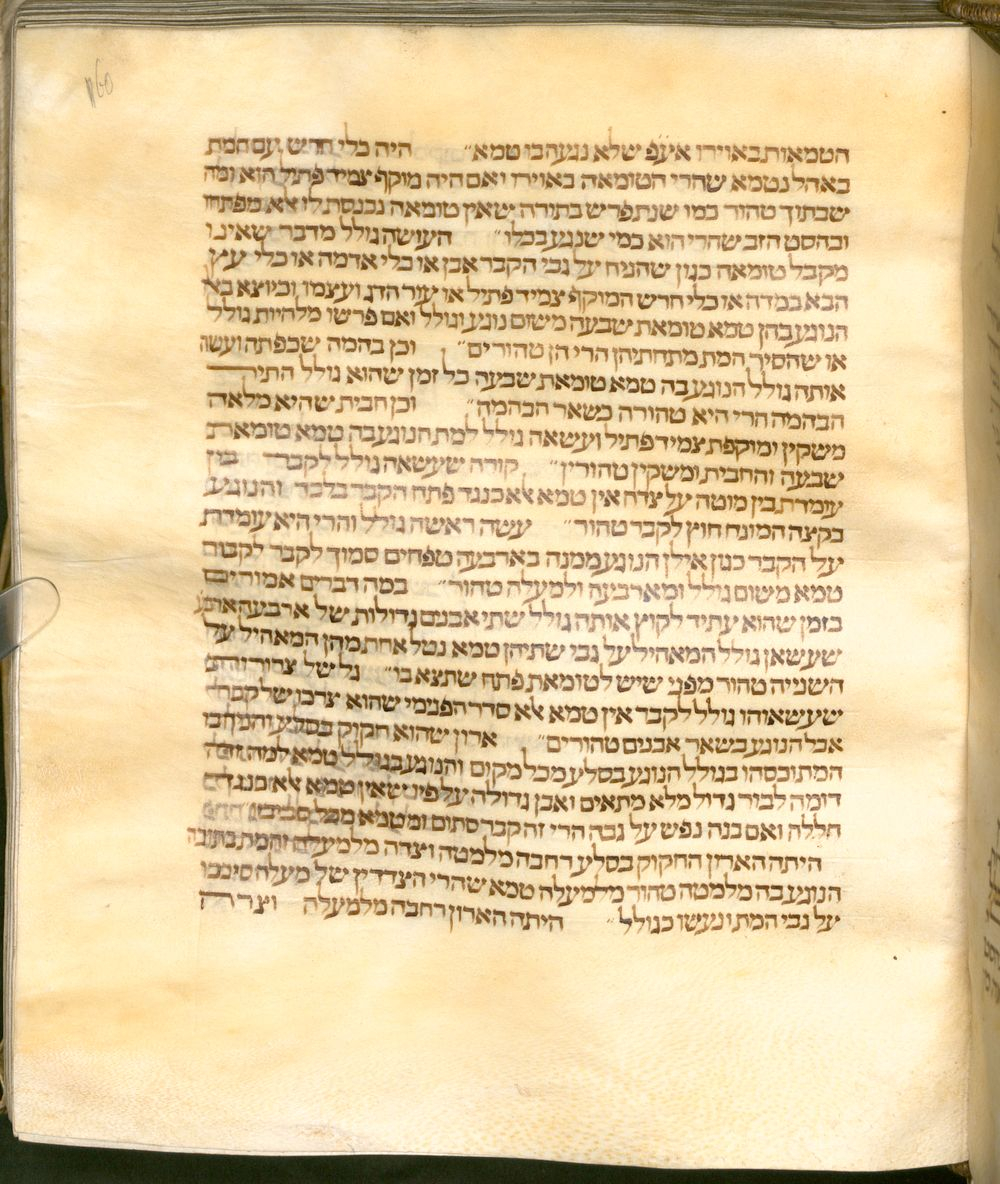 160
הטמאות באוירו אע״פ שלא נגעה בו טמא״ היה כלי חרש עם המת
באהל נטמא שהרי הטומאה באוירו ואם היה מוקף צמיד פתיל הוא ומה
שבתוך טהור כמו שנתפרש בתורה שאין טומאה נכנסת לו אלא מפתחו
ובהסט הזב שהרי הוא כמי שנגע בכלו״ העושה גולל מדבר שאינו
מקבל טומאה כגון שהניח על גבי הקבר אבן או כלי אדמה או כלי עץ
הבא במדה או כלי חרש המוקף צמיד פתיל או עור הדג ועצמו וכיוצא בהן
הנוגע בהן טמא טומאת שבעה משום נוגע וגולל ואם פרשו מלהיות גולל
או שהסיר המת מתחתיהן הרי הן טהורים״ וכן בהמה שכפתה ועשה
אותה גולל הנוגע בה טמא טומאת שבעה כל זמן שהוא גולל התיר
הבהמה הרי היא טהורה כשאר הבהמה״ וכן חבית שהיא מלאה
משקין ומוקפת צמיד פתיל ועשאה גולל למת הנוגע בה טמא טומאת
שבעה והחבית ומשקין טהורין״ קורה שעשאה גולל לקבר בין
עומדת בין מוטה על צדה אין טמא אלא כנגד פתח הקבר בלבד והנוגע
בקצה המונח חוץ לקבר טהור״ עשה ראשה גולל והרי היא עומדת
על הקבר כגון אילן הנוגע ממנה בארבעה טפחים סמוך לקבר לקבר
טמא משום גולל ומארבעה ולמעלה טהור״ במה דברים אמורים
בזמן שהוא עתיד לקוץ אותה גולל שתי אבנים גדולות של ארבעה ארבעה
שעשאן גולל המאהיל על גבי שתיהן טמא נטל אחת מהן המאהיל על
השנייה טהור מפני שיש לטומאת פתח שתצא בו״ גל של צרורות
שעשאוהו גולל לקבר אין טמא אלא סדר הפנימי שהוא צרכו של קבר
אבל הנוגע בשאר אבנים טהורים״ ארון שהוא חקוק בסלע והניח בו
המת וכסהו בגולל הנוגע בסלע מכל מקום והנוגע בגולל טמא למה זה
דומה לבור גדול מלא מתאים ואבן גדולה על פיו שאין טמא אלא כנגד
חללה ואם בנה נפש על גבה הרי זה קבר סתום ומטמא מכל סביביו״
היתה הארון החקוק בסלע רחבה מלמטה וצרה מלמעלה והמת בתוכה
הנוגע בה מלמטה טהור מלמעלה טמא שהרי הצדדין של מעלה סמכו
על גבי המת ונעשו כגולל״ היתה הארון רחבה מלמעלה וצרה